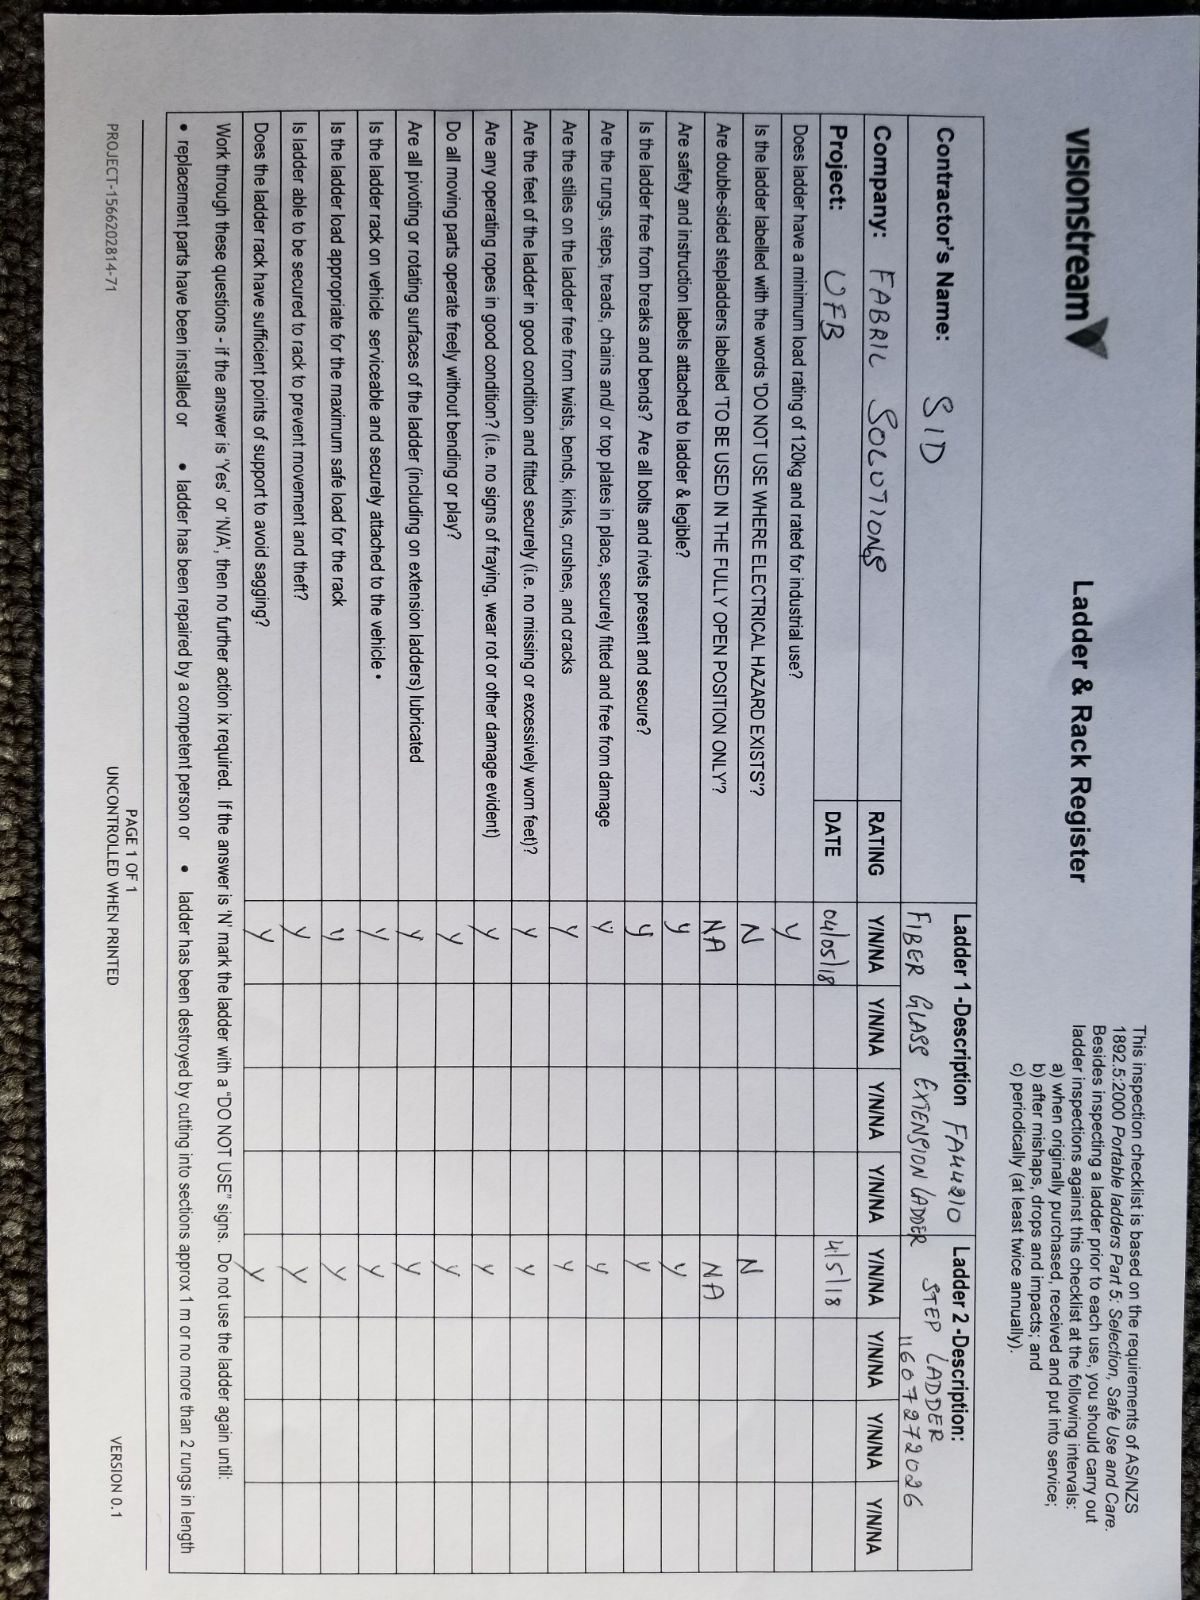 visionstream
Ladder & Rack Register
This inspection checklist is based on the requirements of AS/NZS
1892.5:2000 Portable ladders Part 5: Selection, Safe Use and Care.
Besides inspecting a ladder prior to each use, you should carry out
ladder inspections against this checklist at the following intervals:
a) when originally purchased, received and put into service;
b) after mishaps, drops and impacts; and
c) periodically (at least twice annually).
Contractor's Name: SID
Ladder 1 -Description FA44210
FIBER GLASS EXTENSION LADDER
Ladder 2 -Description:
STEP LADDER
11607272026
Company: FABRIC SOLUTIONS RATING Y/N/NA Y/N/NA Y/N/NA Y/N/NA Y/N/NA Y/N/NA Y/N/NA Y/N/NA
Project: UFB DATE 04/05/18 4/5/18
Does ladder have a minimum load rating of 120kg and rated for industrial use? Y
Is the ladder labelled with the words 'DO NOT USE WHERE ELECTRICAL HAZARD EXISTS'? N N
Are double-sided stepladders labelled 'TO BE USED IN THE FULLY OPEN POSITION ONLY'? NA NA
Are safety and instruction labels attached to ladder & legible? Y Y
Is the ladder free from breaks and bends? Are all bolts and rivets present and secure? Y Y
Are the rungs, steps, treads, chains and/ or top plates in place, securely fitted and free from damage Y Y
Are the stiles on the ladder free from twists, bends, kinks, crushes, and cracks Y Y
Are the feet of the ladder in good condition and fitted securely (i.e. no missing or excessively worn feet)? Y Y
Are any operating ropes in good condition? (i.e. no signs of fraying, wear rot or other damage evident) Y Y
Do all moving parts operate freely without bending or play? Y Y
Are all pivoting or rotating surfaces of the ladder (including on extension ladders) lubricated Y Y
Is the ladder rack on vehicle serviceable and securely attached to the vehicle • Y Y
Is the ladder load appropriate for the maximum safe load for the rack Y Y
Is ladder able to be secured to rack to prevent movement and theft? Y Y
Does the ladder rack have sufficient points of support to avoid sagging? Y Y
Work through these questions - if the answer is 'Yes' or 'N/A', then no further action ix required. If the answer is 'N' mark the ladder with a "DO NOT USE" signs. Do not use the ladder again until:
• replacement parts have been installed or • ladder has been repaired by a competent person or • ladder has been destroyed by cutting into sections approx 1 m or no more than 2 rungs in length
PAGE 1 OF 1
PROJECT-1566202814-71 UNCONTROLLED WHEN PRINTED VERSION 0.1